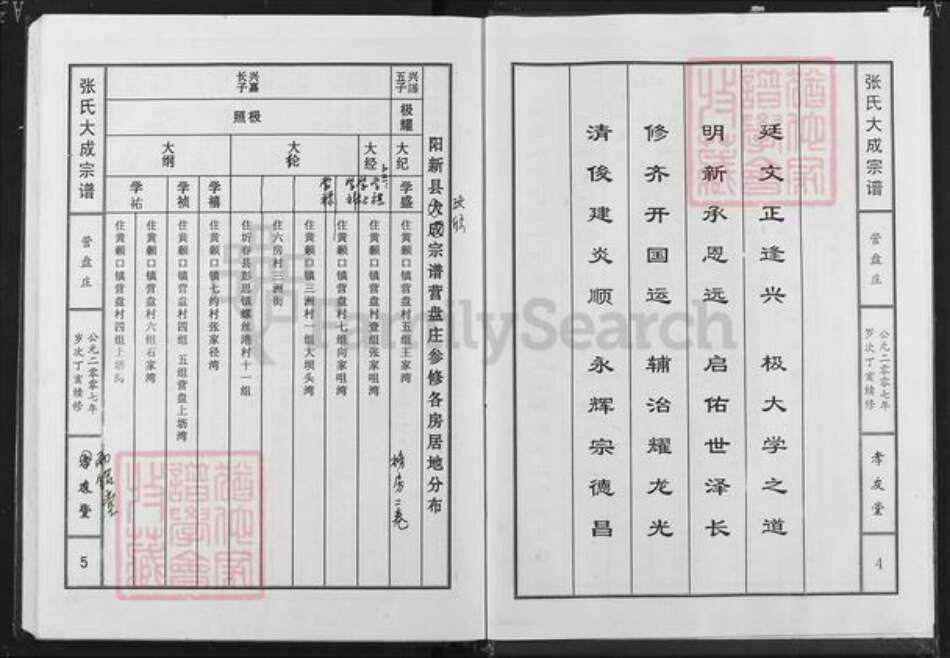 张氏大成宗谱
营盘庄
公元二零零七年
岁次丁亥续修
孝友堂
4
廷文正逢兴 极大学之道
明新承恩远 启佑世泽长
修齐开国运 辅治耀龙光
清俊建炎顺 永辉宗德昌
阳新县大成宗谱营盘庄参修各房居地分布
五子
极耀
大纪
学盛
住黄颡口镇营盘村五组王家湾
兴嘉
长子
极照
大经
住黄颡口镇营盘村壹组张家咀湾
大纶
住黄颡口镇营盘村七组向家咀湾
住黄颡口镇三洲村一组大坝头湾
住六房村三洲街
住圻春县彭思镇螺丝港村十一组
大纲
学禧
住黄颡口镇七约村张家径湾
学祯
住黄颡口镇营盘村四组 五组营盘上塆湾
学祐
住黄颡口镇营盘村六组石家湾
住黄颡口镇营盘村四组上塆
张氏大成宗谱
营盘庄
公元二零零七年
岁次丁亥续修
孝友堂
5
FamilySearch